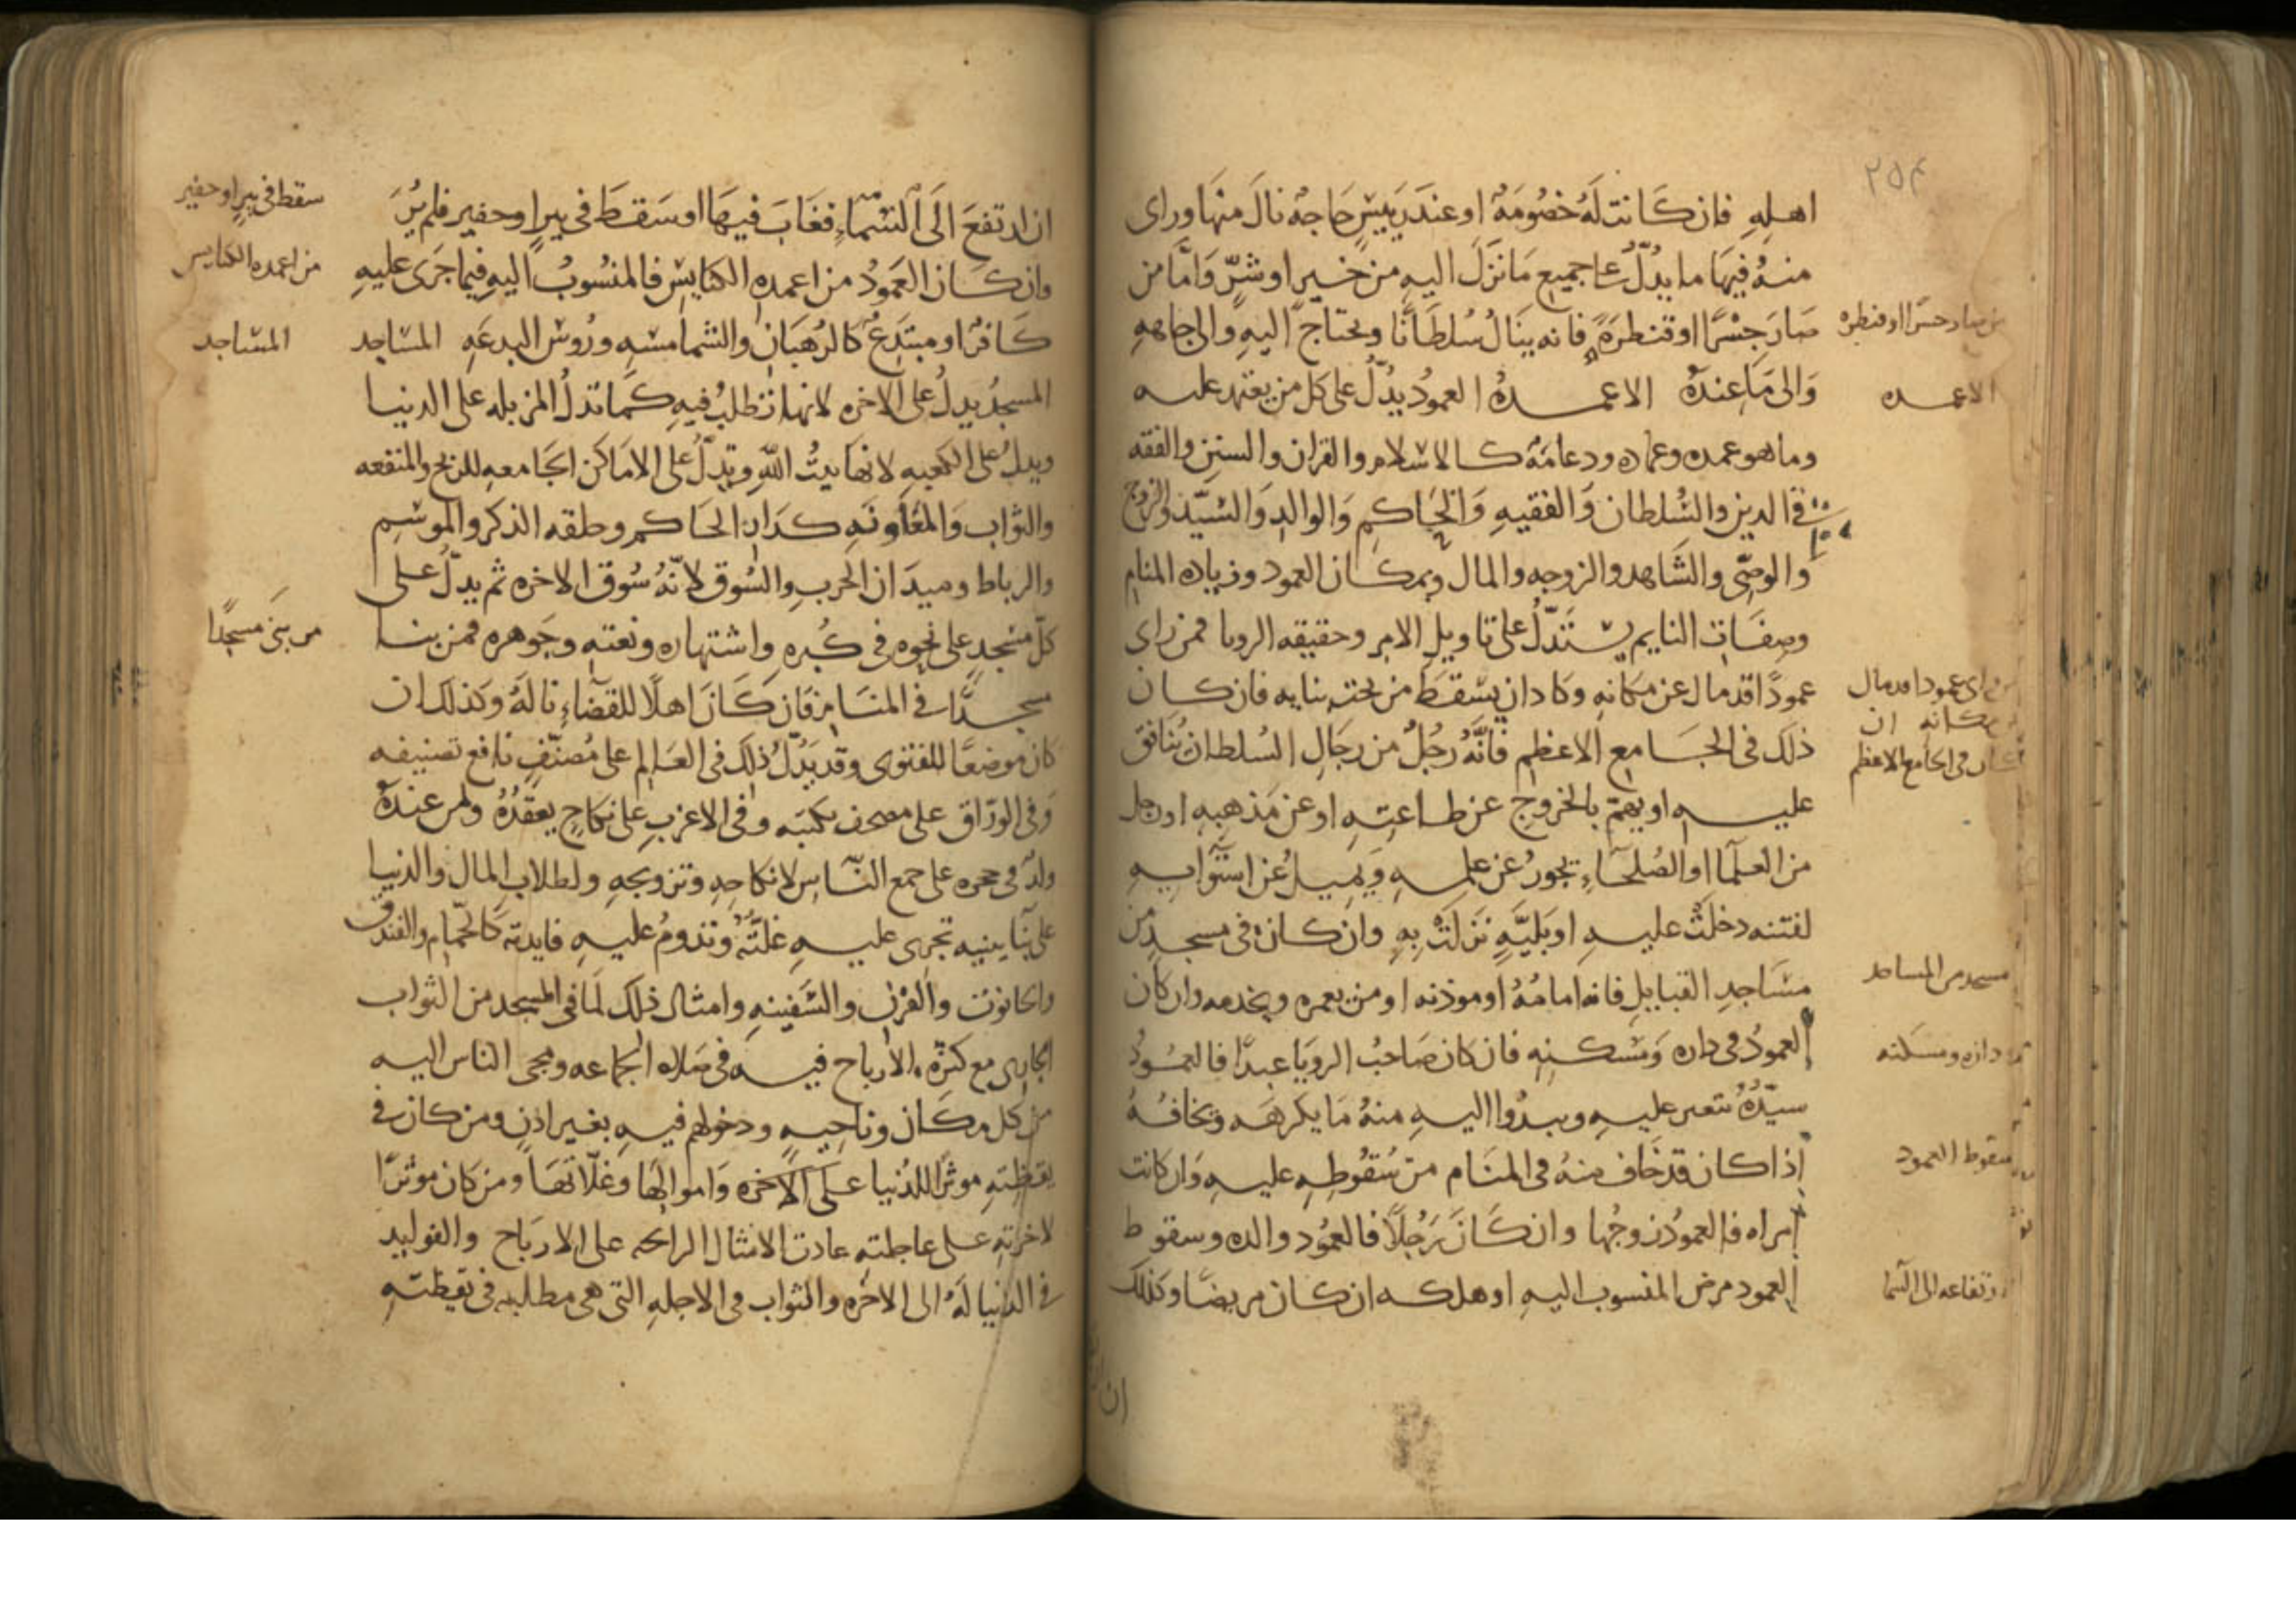 ٢٥٤
اهله فان كَانت لَهُ خصُومَةٌ او عندَ رَييسٍ حَاجة نالَ منهَا وراى
منهُ فيهَا ما يدُلّ على جميع مَا نزَلَ اليهِ من خيرٍ او شرّ وَامَّا من
صَارَ جسْرًا او قنطرَةً فانه ينَالُ سُلطَانًا ويحتاجُ اليهِ والى جاههِ
وَالى مَا عندَهُ الاعمـدهُ العمودُ يدُلّ على كل من يعتمد عليه
وما هو عمده وعماده ودعامَهٌ كالاسلام والقران والسنن والفقه
في الدين والسُلطان وَالفقيهِ وَالحَاكمِ وَالوالدِ وَالسيّد والزوج
والوصّى والشَاهد والزوجه والمال وبمكان العمود وزياده المنام
وصفَات النايم يستَدَلّ على تاويل الامر وحقيقه الرويا فمن راى
عمودًا قد مال عن مكانهِ وكاد ان يسقطَ من تحت بنايه فان كان
ذلَكَ في الجَامع الاعظم فانَّهُ رَجُلٌ من رجَالِ السُلطان يُنافق
عليهِ او يهمّ بالخروج عن طاعتِهِ او عن مَذهبِهِ او رجل
من العلَما او الصُلحَاءِ يجورُ عن علمهِ وَيميلُ عن استوَايهِ
لفتنه دخلَتْ عليهِ او بَليَّهٍ نزلَتْ بهِ وان كان في مسجدٍ من
مسَاجدِ القبايلِ فانه امامُهُ او موذنه او من يعمره ويخدمه وان كان
العمودُ في داره وَمسكنِهِ فان كان صَاحبُ الرويَا عبدًا فالعمُودُ
سيّدُهُ يتغير عليهِ ويبدُوا اليهِ منهُ مَا يكرهَه ويخافُهُ
اذا كان قد خَاف منهُ في المنَام من سُقوُطهِ عليهِ وَان كانت
امراه فالعمودُ زوجُها وان كَانَ رَجُلًا فالعمُود والده وسقوط
العمود مرض المنسوب اليهِ او هلكه ان كان مريضًا وكذلكَ
من صار جسرًا او قنطره
الاعمده
عمودا قد مال
مكانه ان
كان في الجامع الاعظم
مسجد من المساجد
داره ومسكنه
سقوط العمود
ارتفاعه الى السَما
ان ارتفعَ الَى السَّماءِ فغَابَ فيهَا او سَقطَ في بيرٍ او حفيرٍ فلم يُرَ
وان كَانَ العَمودُ من اعمدهِ الكنايسِ فالمنسُوبُ اليهِ فيما جرَى عليهِ
كَافرٌ او مبتَدعٌ كالرُهبَانِ والشمامسهِ ورُوس البدعَهِ المسَاجد
المسجدُ يدلُ على الاخره لانها تطلبُ فيهِ كما تدلُ المزبله على الدنيا
ويدلُ على الكعبهِ لانهَا بيتُ اللهِ وتدلّ على الامَاكن الجَامعهِ للربح والمنفعه
والثواب وَالمعَاونَهِ كدَارِ الحَاكم وحلقه الذكر والموسمِ
والرباط وميدَان الحربِ والسُوق لانّهُ سُوق الاخره ثم يدلّ على
كلّ مسْجدٍ على نحوهِ في كبُره واشتهاره ونعتهِ وجَوهره فمن بنا
مسجدًّا في المنَام فَان كَانَ اهلًا للقضَاءِ نالَهُ وكَذلَكَ ان
كان موضعًا للفتوى وقد يَدُلّ ذلكَ في العَالم على مُصنّفٍ نافع تصنيفه
وَفي الورّاق على مصحف يكتبَه وفي الاعزبِ على نكاحٍ يعقدُهُ ولمن عندهُ
ولدٌ في حجره على جمع النَّاسِ لانكاحِهِ وتزويجهِ ولطلابِ المال والدنيا
على بنَآءٍ يبنيه تجرى عليهِ غلتُهُ وتدومُ عليهِ فايدته كالحمّام والفندق
والحانوت والفُرْن والسَفينهِ وامثال ذلكَ لَما في المسجد من الثواب
الجارى مع كثرَة الارباح فيه في صَلاه الجماعه ومجى الناس اليه
من كل مكَان وناحيهٍ ودخولهم فيهِ بغير اذنٍ ومن كان في
يقظتهِ موثرًا للدُنيا على الاخره وَاموالهَا وغلّاتهَا ومن كان موثرًا
لاخرتهِ على عاجلته عادت الامثال الرابحه على الارباح والفوايد
في الدنيا لَهُ الى الاخره والثواب في الاجلهِ التي هي مطلبه في يقظتهِ
سقط في بيرٍ او حفير
من اعمده الكنايس
المسَاجد
من بَنىَ مسجدًا